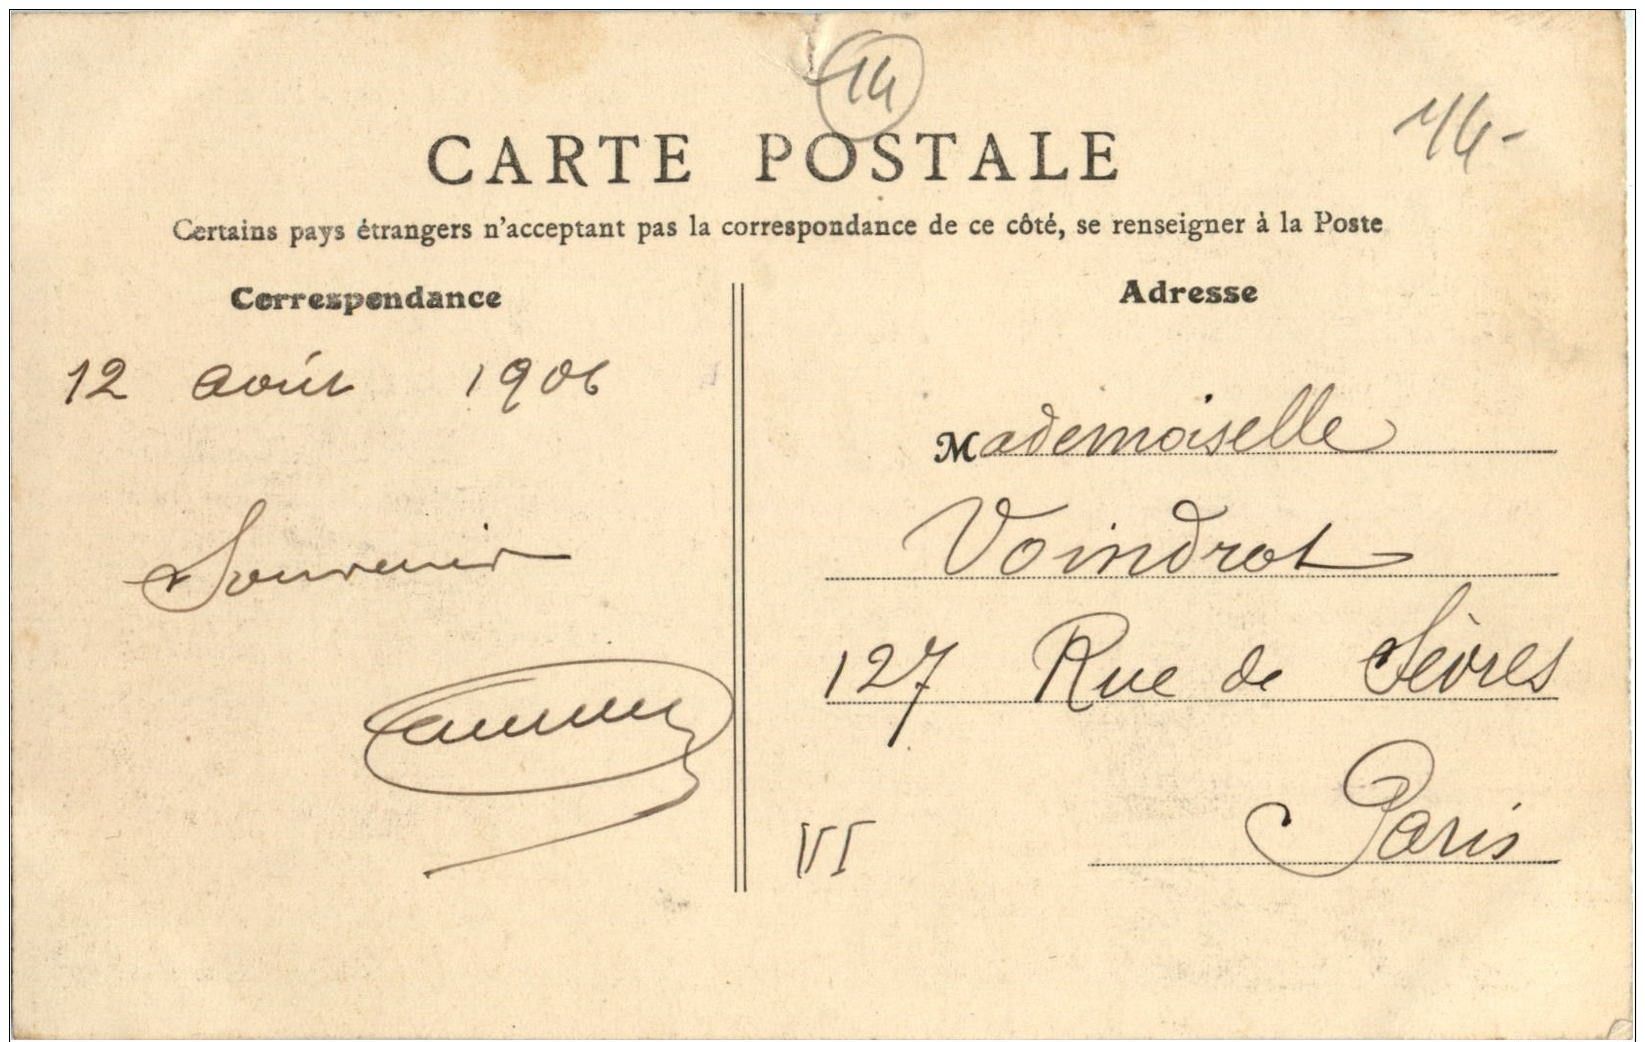 14
14-
CARTE POSTALE
Certains pays étrangers n'acceptant pas la correspondance de ce côté, se renseigner à la Poste
Correspondance
12 août 1906
Souvenir
Adresse
Mademoiselle
Voindrot
127 Rue de Sèvres
Paris
VI